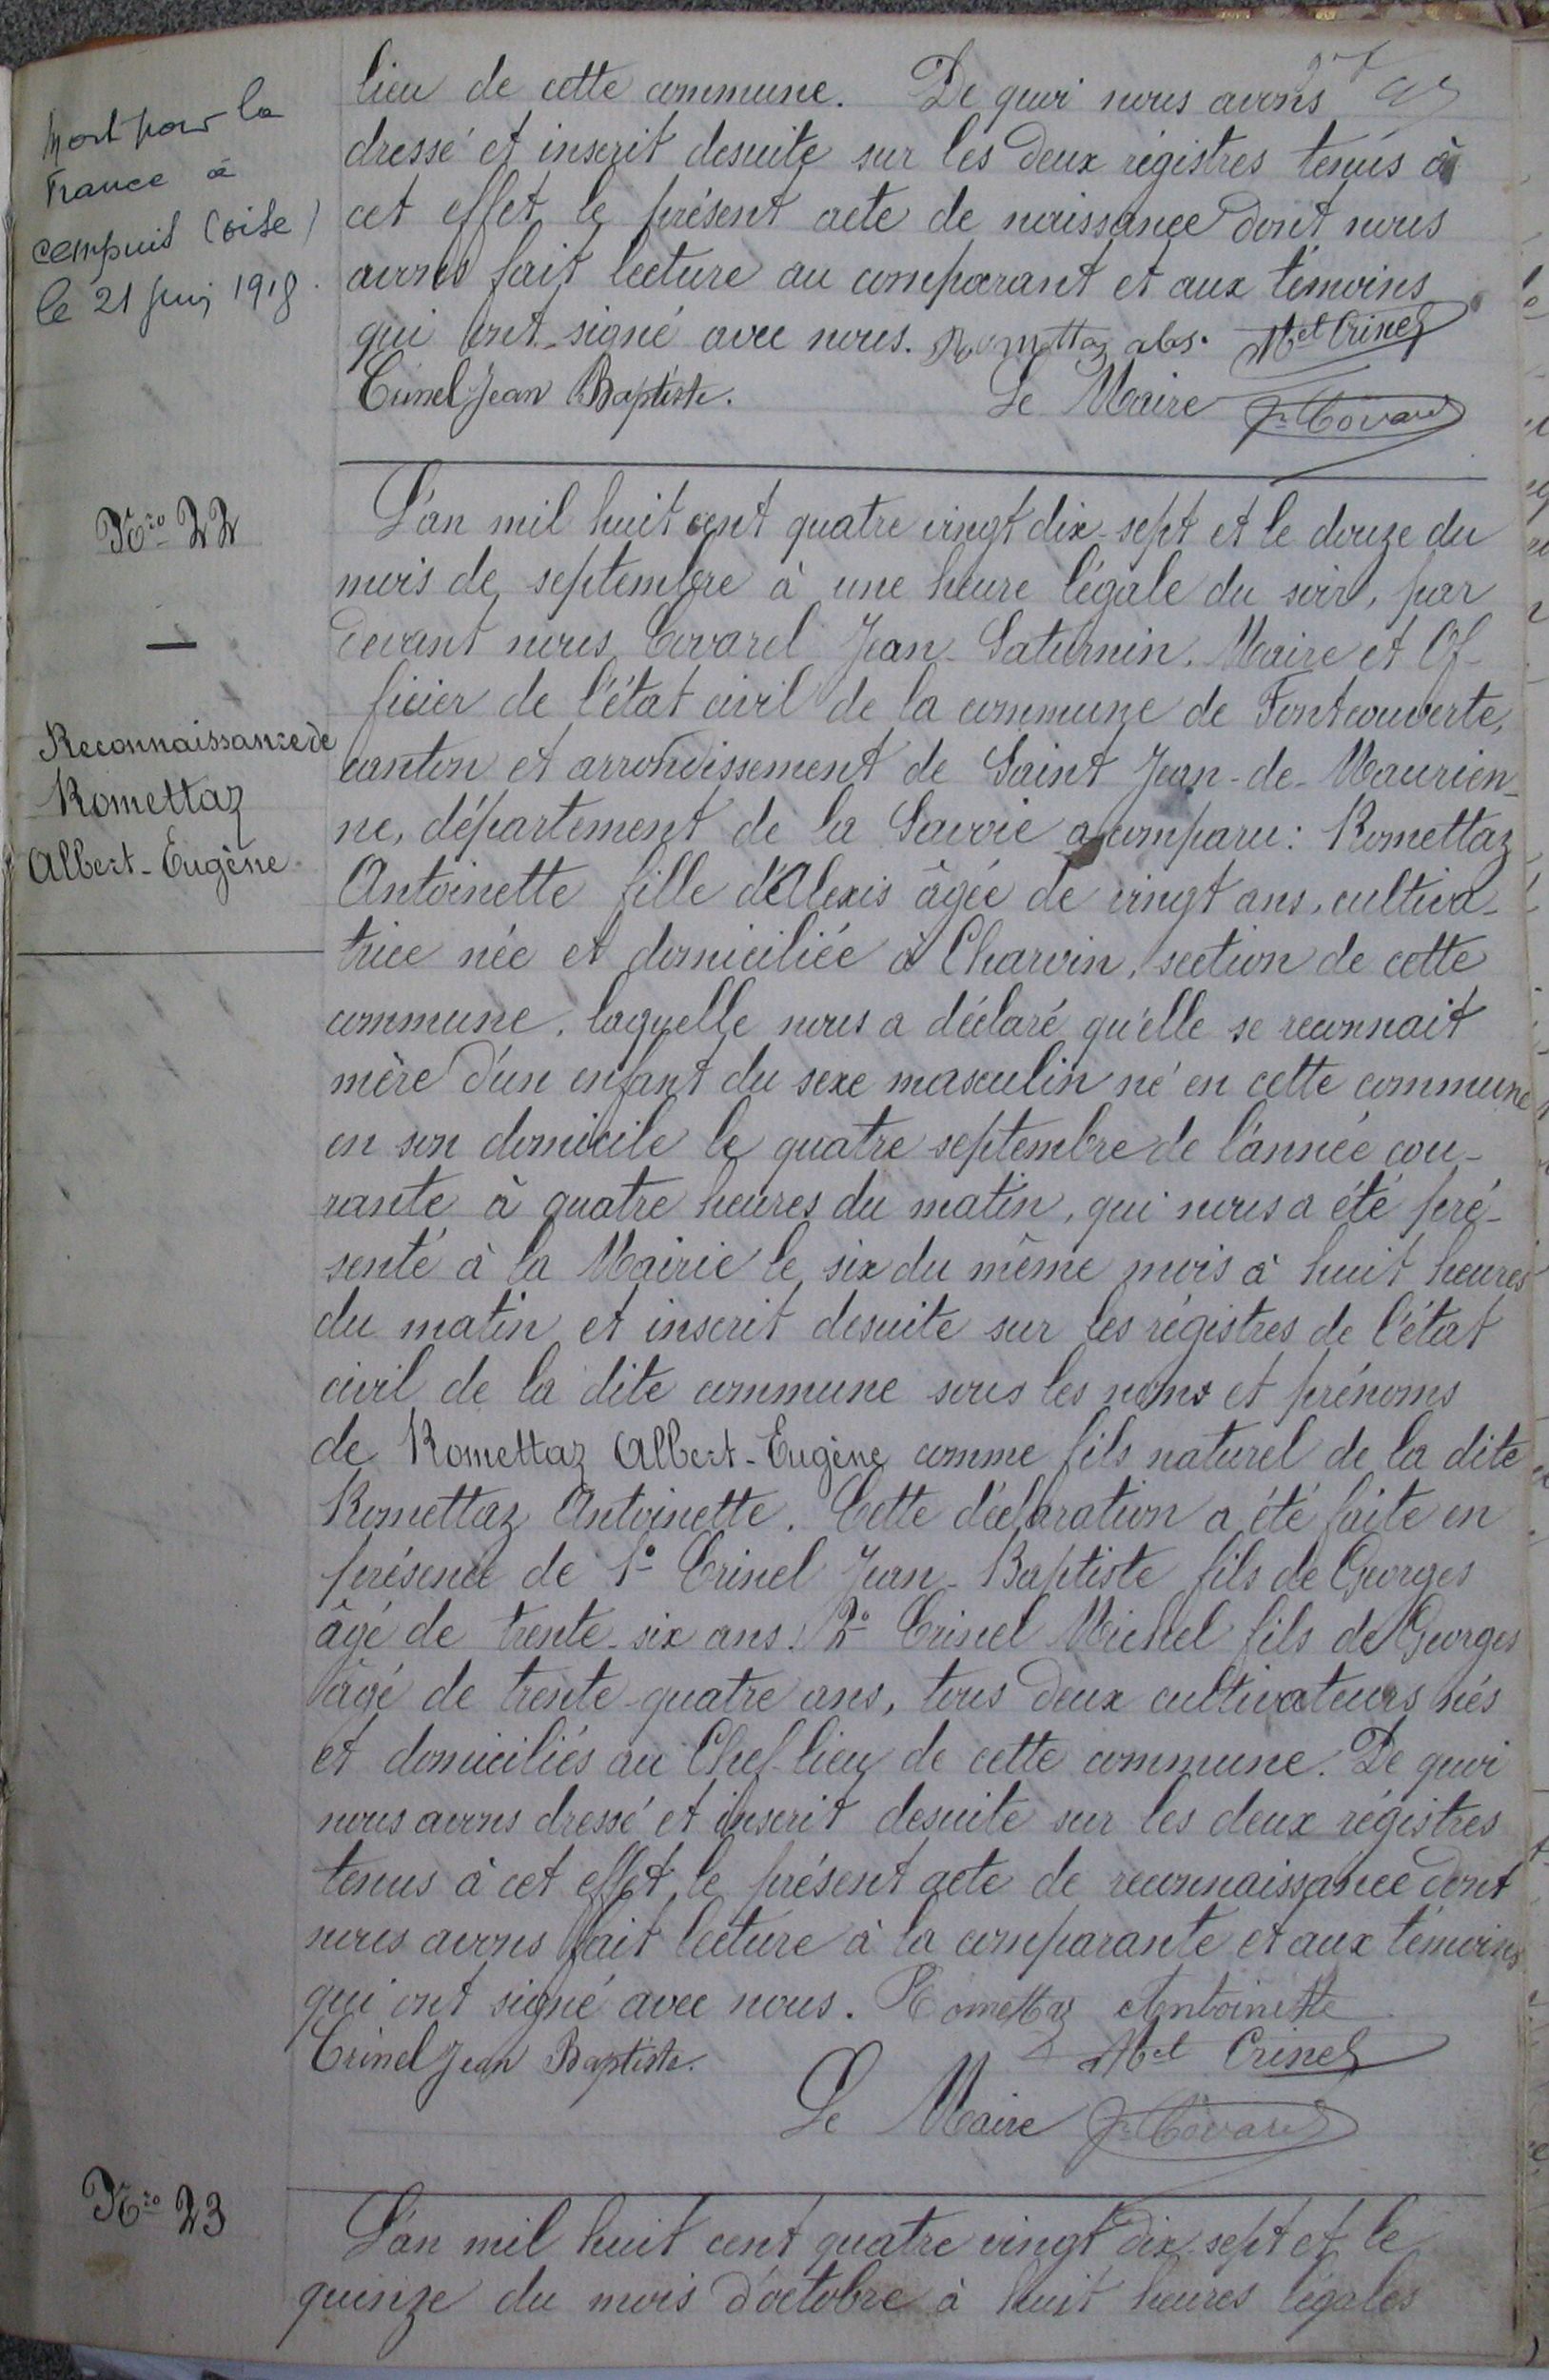 Mort pour la
France à
Cempuis (oise)
le 21 juin 1918.
lieu de cette commune. De quoi nous avons
dressé et inscrit desuite sur les deux régistres tenus à
cet effet le présent acte de naissance dont nous
avons fait lecture au comparant et aux témoins
qui ont signé avec nous. Romettaz alexis. Mel Crinel
Crinel Jean Baptiste. Le Maire J. Covarel
Nro 22
Reconnaissance de
Romettaz
Albert-Eugène
L'an mil huit cent quatre vingt dix-sept et le douze du
mois de septembre à une heure légale du soir, par
devant nous Covarel Jean-Saturnin. Maire et Of-
ficier de l'état civil de la commune de Fontcouverte,
canton et arrondissement de Saint Jean-de-Maurien-
ne, département de la Savoie a comparu: Romettaz
Antoinette fille d'Alexis âgée de vingt ans, cultiva-
trice née et domiciliée à Charvin, section de cette
commune. laquelle nous a déclaré qu'elle se reconnait
mère d'un enfant du sexe masculin né en cette commune
en son domicile le quatre septembre de l'année cou-
rante à quatre heures du matin, qui nous a été pré-
senté à la Mairie le six du même mois à huit heures
du matin et inscrit desuite sur les régistres de l'état
civil de la dite commune sous les noms et prénoms
de Romettaz Albert-Eugène comme fils naturel de la dite
Romettaz Antoinette. Cette déclaration a été faite en
présence de 1º Crinel Jean-Baptiste fils de Georges
âgé de trente-six ans. 2º Crinel Michel fils de Georges
âgé de trente-quatre ans, tous deux cultivateurs nés
et domiciliés au Chef-lieu de cette commune. De quoi
nous avons dressé et inscrit desuite sur les deux régistres
tenus à cet effet le présent acte de reconnaissance dont
nous avons fait lecture à la comparante et aux témoins
qui ont signé avec nous. Romettaz Antoinette
Crinel Jean Baptiste. Mel Crinel
Le Maire J. Covarel
Nro 23
L'an mil huit cent quatre vingt dix-sept et le
quinze du mois d'octobre à huit heures légales